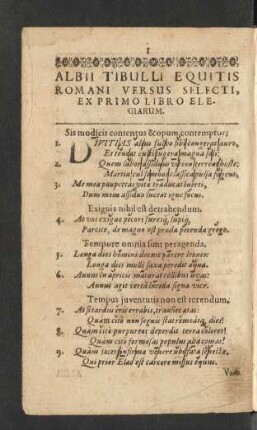 1
ALBII TIBULLI EQUITIS
ROMANI VERSUS SELECTI,
EX PRIMO LIBRO ELE-
GIARUM.
Sis modicis contentus & opum contemptor;
1. DIVITIAS alius fulvo sibi congerat auro,
Et teneat culti jugera magna soli.
2. Quem labor assiduus vicino terreat hoste;
Martia cui somnos classica pulsa fugent,
3. Me mea paupertas vitæ traducat inerti,
Dum meus assiduo luceat igne focus.
Exiguis nihil est detrahendum.
4. At vos exiguo pecori furesq́; lupiq́;
Parcite, de magno est præda petenda grege.
Tempore omnia fiunt peragenda.
5. Longa dies homini docuit parere leones:
Longa dies molli saxa peredit aqua.
6. Annus in apricis maturat collibus uvas:
Annus agit certâ lucida signa vice.
Tempus juventutis non est terendum.
7. At si tardus eris errabis, transiet ætas:
Quam cito non segnis stat remeatq; dies!
8. Quam cito purpureos deperdit terra colores!
Quam cito formosas populus alta comas!
9. Quàm jacet
Qui prior Elæo est carcere missus equus.
A